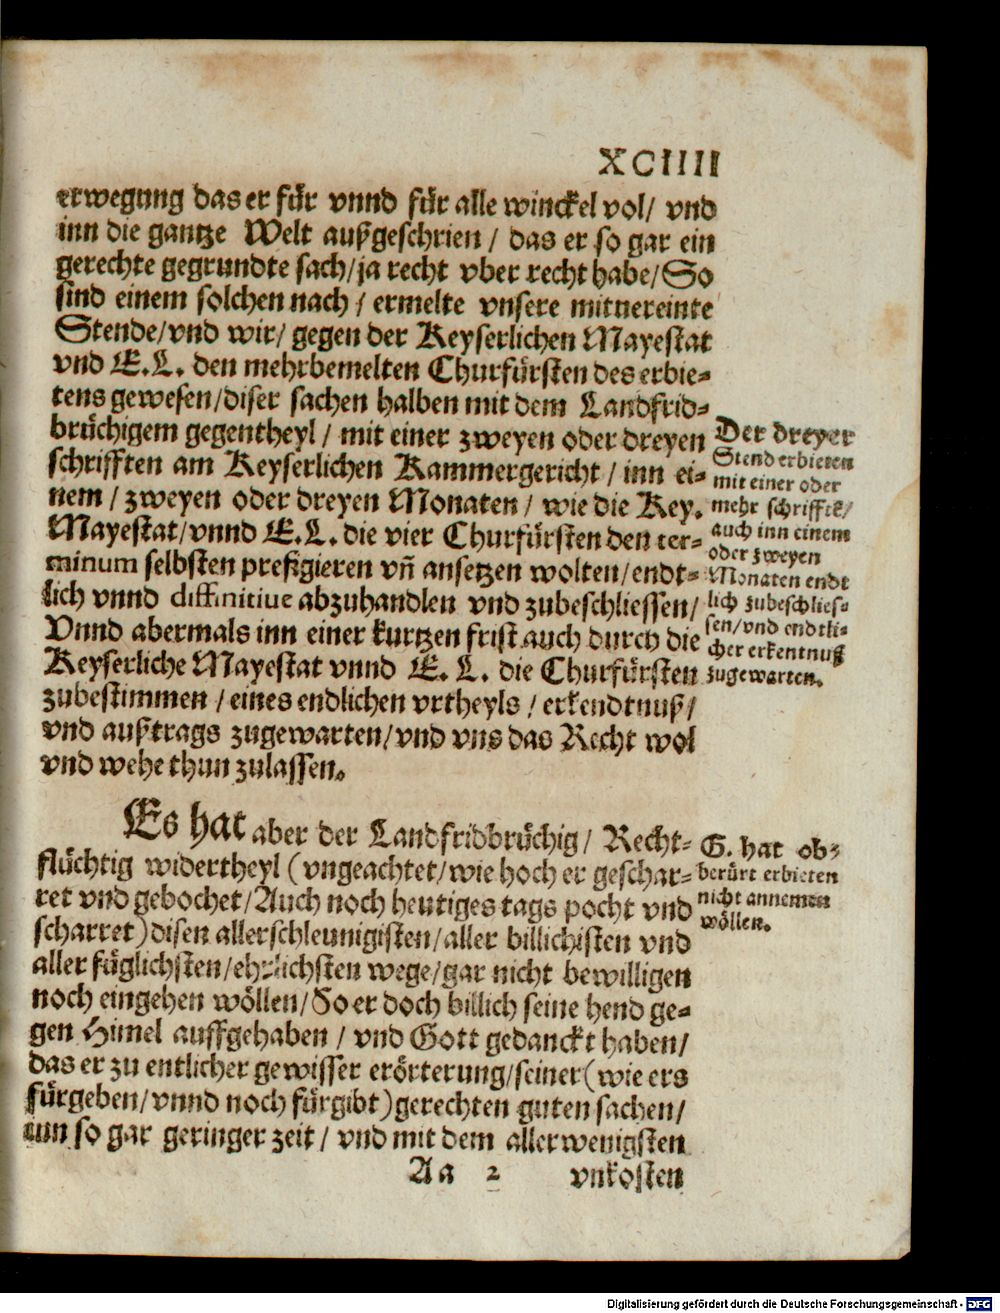 XCIIII
erwegung das er für vnnd für alle winckel vol/ vnd
inn die gantze Welt außgeschrien / das er so gar ein
gerechte gegrundte sach/ja recht vber recht habe/So
sind einem solchen nach / ermelte vnsere mituereinte
Stende/vnd wir/ gegen der Keyserlichen Mayestat
vnd E.L. den mehrbemelten Churfürsten des erbie⸗
tens gewesen/diser sachen halben mit dem Landfrid⸗
brüchigem gegentheyl / mit einer zweyen oder dreyen
schrifften am Keyserlichen Kammergericht / inn ei⸗
nem / zweyen oder dreyen Monaten / wie die Key.
Mayestat/vnnd E.L. die vier Churfürsten den ter⸗
minum selbsten prefigieren vñ ansetzen wolten/endt⸗
lich vnnd diffinitiue abzuhandlen vnd zubeschliessen/
Vnnd abermals inn einer kurtzen frist auch durch die
Keyserliche Mayestat vnnd E. L. die Churfürsten
zubestimmen / eines endlichen vrtheyls / erkendtnuß/
vnd außtrags zugewarten/vnd vns das Recht wol
vnd wehe thun zulassen.
Der dreyer
Stend erbieten
mit einer oder
mehr schrifftē/
auch inn einem
oder zweyen
Monaten endt
lich zubeschlies⸗
sen/vnd endtli⸗
cher erkentnuß
zugewarten.
Es hat aber der Landfridbrüchig/ Recht⸗
flüchtig widertheyl (vngeachtet/wie hoch er geschar⸗
ret vnd gebochet/Auch noch heutiges tags pocht vnd
scharret) disen allerschleunigisten/aller billichisten vnd
aller füglichsten/ehrlichsten wege/gar nicht bewilligen
noch eingehen wöllen/So er doch billich seine hend ge⸗
gen Himel auffgehaben / vnd Gott gedanckt haben/
das er zu entlicher gewisser erörterung/seiner (wie ers
fürgeben/vnnd noch fürgibt) gerechten guten sachen/
inn so gar geringer zeit / vnd mit dem allerwenigsten
G. hat ob⸗
berürt erbieten
nicht annemen
wöllen.
Aa 2 vnkosten
Digitalisierung gefördert durch die Deutsche Forschungsgemeinschaft - DFG